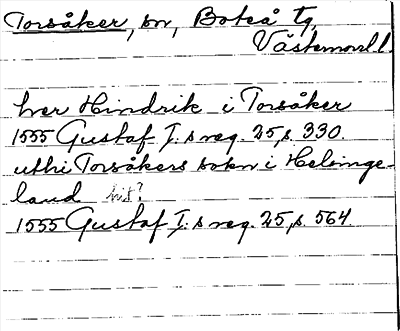 Torsåker, sn, Boteå tg,
Västernorrl. l.
herr Hindrik i Torsåker
1555 Gustaf I:s reg. 25, s. 330.
uthi Torsåkers sokn i Helsinge-
land hit?
1555 Gustaf I:s reg. 25, s. 564